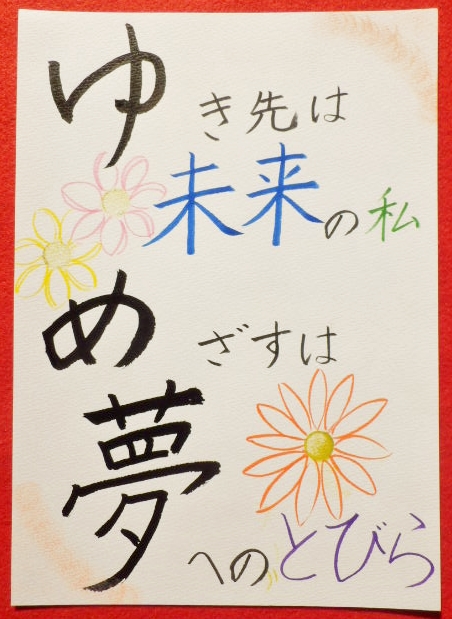 ゆき先は
未来の私
めざすは
夢へのとびら